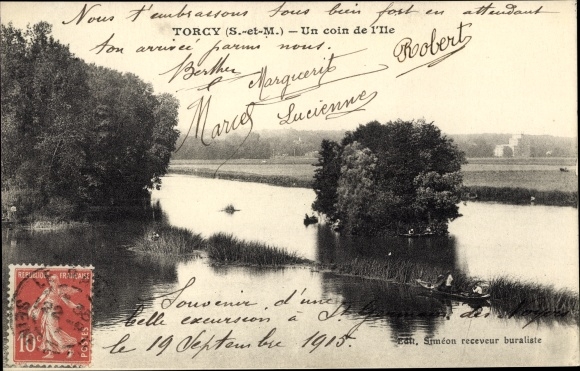 Nous t'embrassons tous bien fort en attendant
TORCY (S.-et-M.) — Un coin de l'Ile
ton arrivée parmi nous.
Robert
Berthe Marguerit
Marcel Lucienne
REPUBLIQUE FRANÇAISE
10c
Souvenir d'une
belle excursion à St Germain des Noyers
le 19 Septembre 1915
Edit. Siméon receveur buraliste